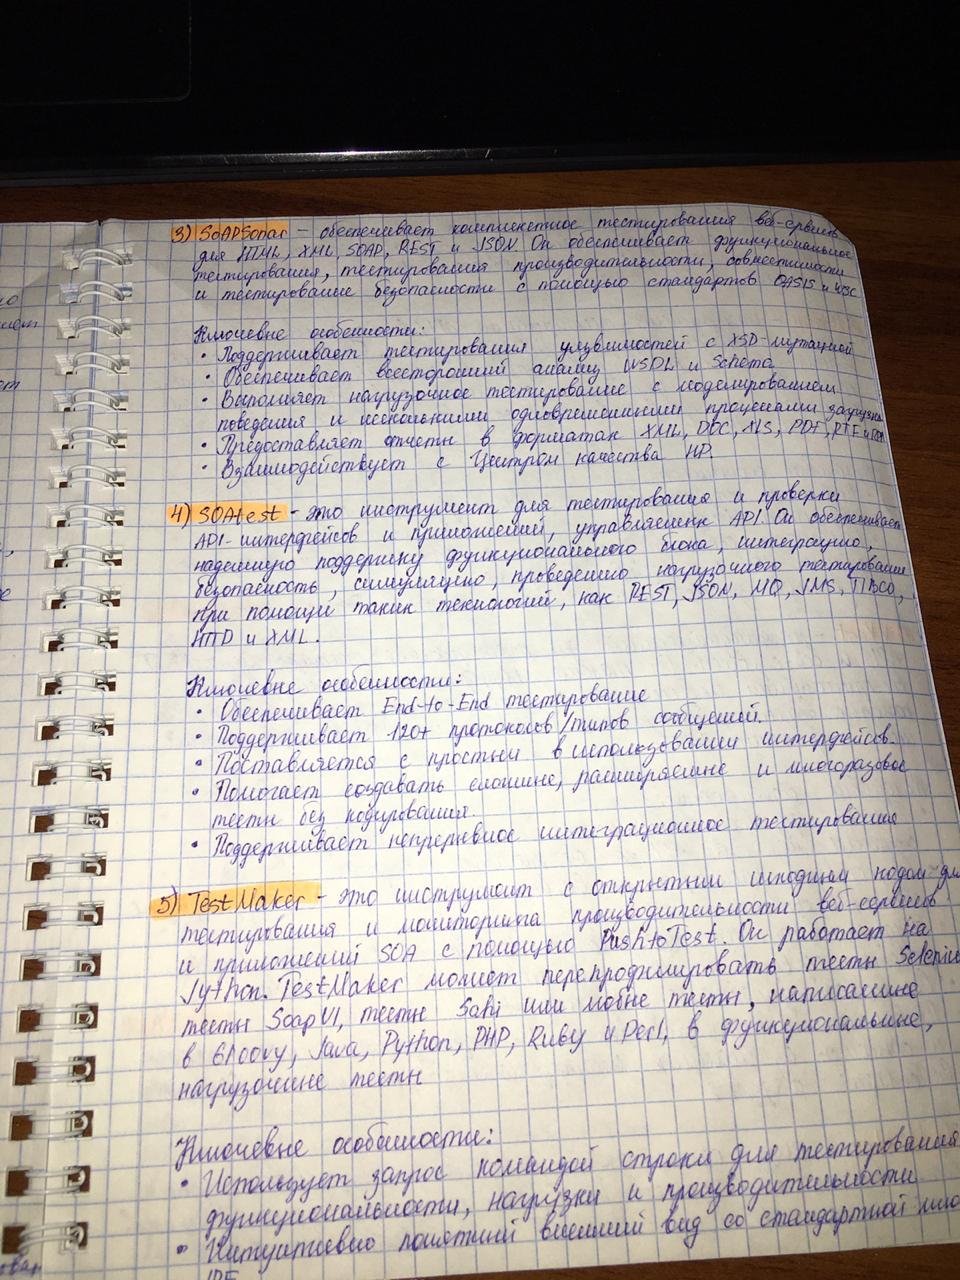 3) SOAPSonar – обеспечивает комплексное тестирования веб-сервисов
для HTML, XML, SOAP, REST и JSON. Он обеспечивает функциональное
тестирования, тестирования производительности, совместимости
и тестирование безопасности с помощью стандартов OASIS и W3C
Ключевые особенности:
• Поддерживает тестирования уязвимостей с XSD-мутацией
• Обеспечивает всесторонний анализ WSDL и Schema
• Выполняет нагрузочное тестирование с моделированием
поведения и несколькими одновременными процессами загрузки
• Предоставляет отчеты в форматах XML, DOC, XLS, PDF, RTF и
• Взаимодействует с Центром качества HP.
4) SOAtest – это инструмент для тестирования и проверки
API-интерфейсов и приложений, управляемых API. Он обеспечивает
надежную поддержку функционального блока, интеграцию,
безопасность, симуляцию, проведению нагрузочного тестирования
при помощи таких технологий, как REST, JSON, MQ, JMS, TIBCO,
HTTP и XML.
Ключевые особенности:
• Обеспечивает End-to-End тестирование
• Поддерживает 120+ протоколов/типов сообщений.
• Поставляется с простым в использовании интерфейсов.
• Помогает создавать сложные, расширяемые и многоразовые
тесты без кодирования.
• Поддерживает непрерывное интеграционное тестирование
5) TestMaker – это инструмент с открытым исходным кодом для
тестирования и мониторинга производительности веб-сервисов
и приложений SOA с помощью PushtoTest. Он работает на
Jython. TestMaker может перепрофилировать тесты Selenium
тесты SoapUI, тесты Sahi или любые тесты, написанные
в Groovy, Java, Python, PHP, Ruby и Perl, в функциональные,
нагрузочные тесты
Ключевые особенности:
• Использует запрос командой строки для тестирования
функциональности, нагрузки и производительности
• Интуитивно понятный внешний вид со стандартной
IDE